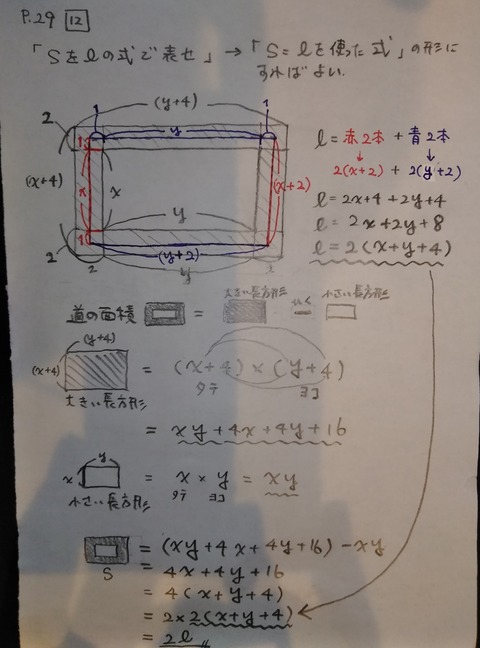 P.29 12
「Sをlの式で表せ」→「S=lを使った式」の形に
すればよい.
(y+4)
1
1
2
y
1
(x+4)
x
x
(x+2)
y
1
2
(y+2)
2
2
y
l = 赤2本 + 青2本
2(x+2) + 2(y+2)
l = 2x+4+2y+4
l = 2x+2y+8
l = 2(x+y+4)
大きい長方形
ひく
小さい長方形
道の面積 =
(y+4)
(x+4)
= (x+4) × (y+4)
タテ ヨコ
大きい長方形
= xy+4x+4y+16
y
x
= x × y = xy
タテ ヨコ
小さい長方形
= (xy+4x+4y+16) - xy
S
= 4x+4y+16
= 4(x+y+4)
= 2×2(x+y+4)
= 2l